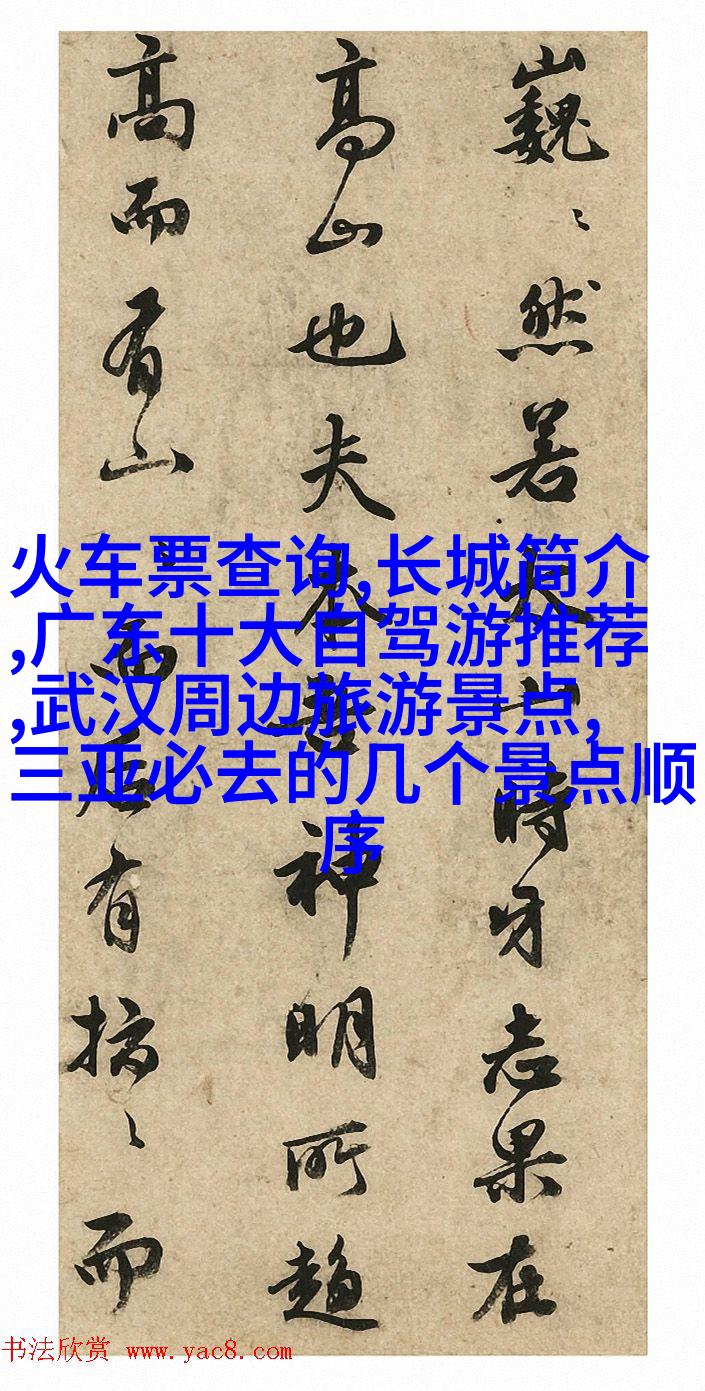 巍〻然若時牙志果在
高山也夫本善神明所趨
高而有山有〻而
火车票查询,长城简介
,广东十大自驾游推荐
,武汉周边旅游景点,
三亚必去的几个景点顺
序
书法欣赏 www.yac8.com